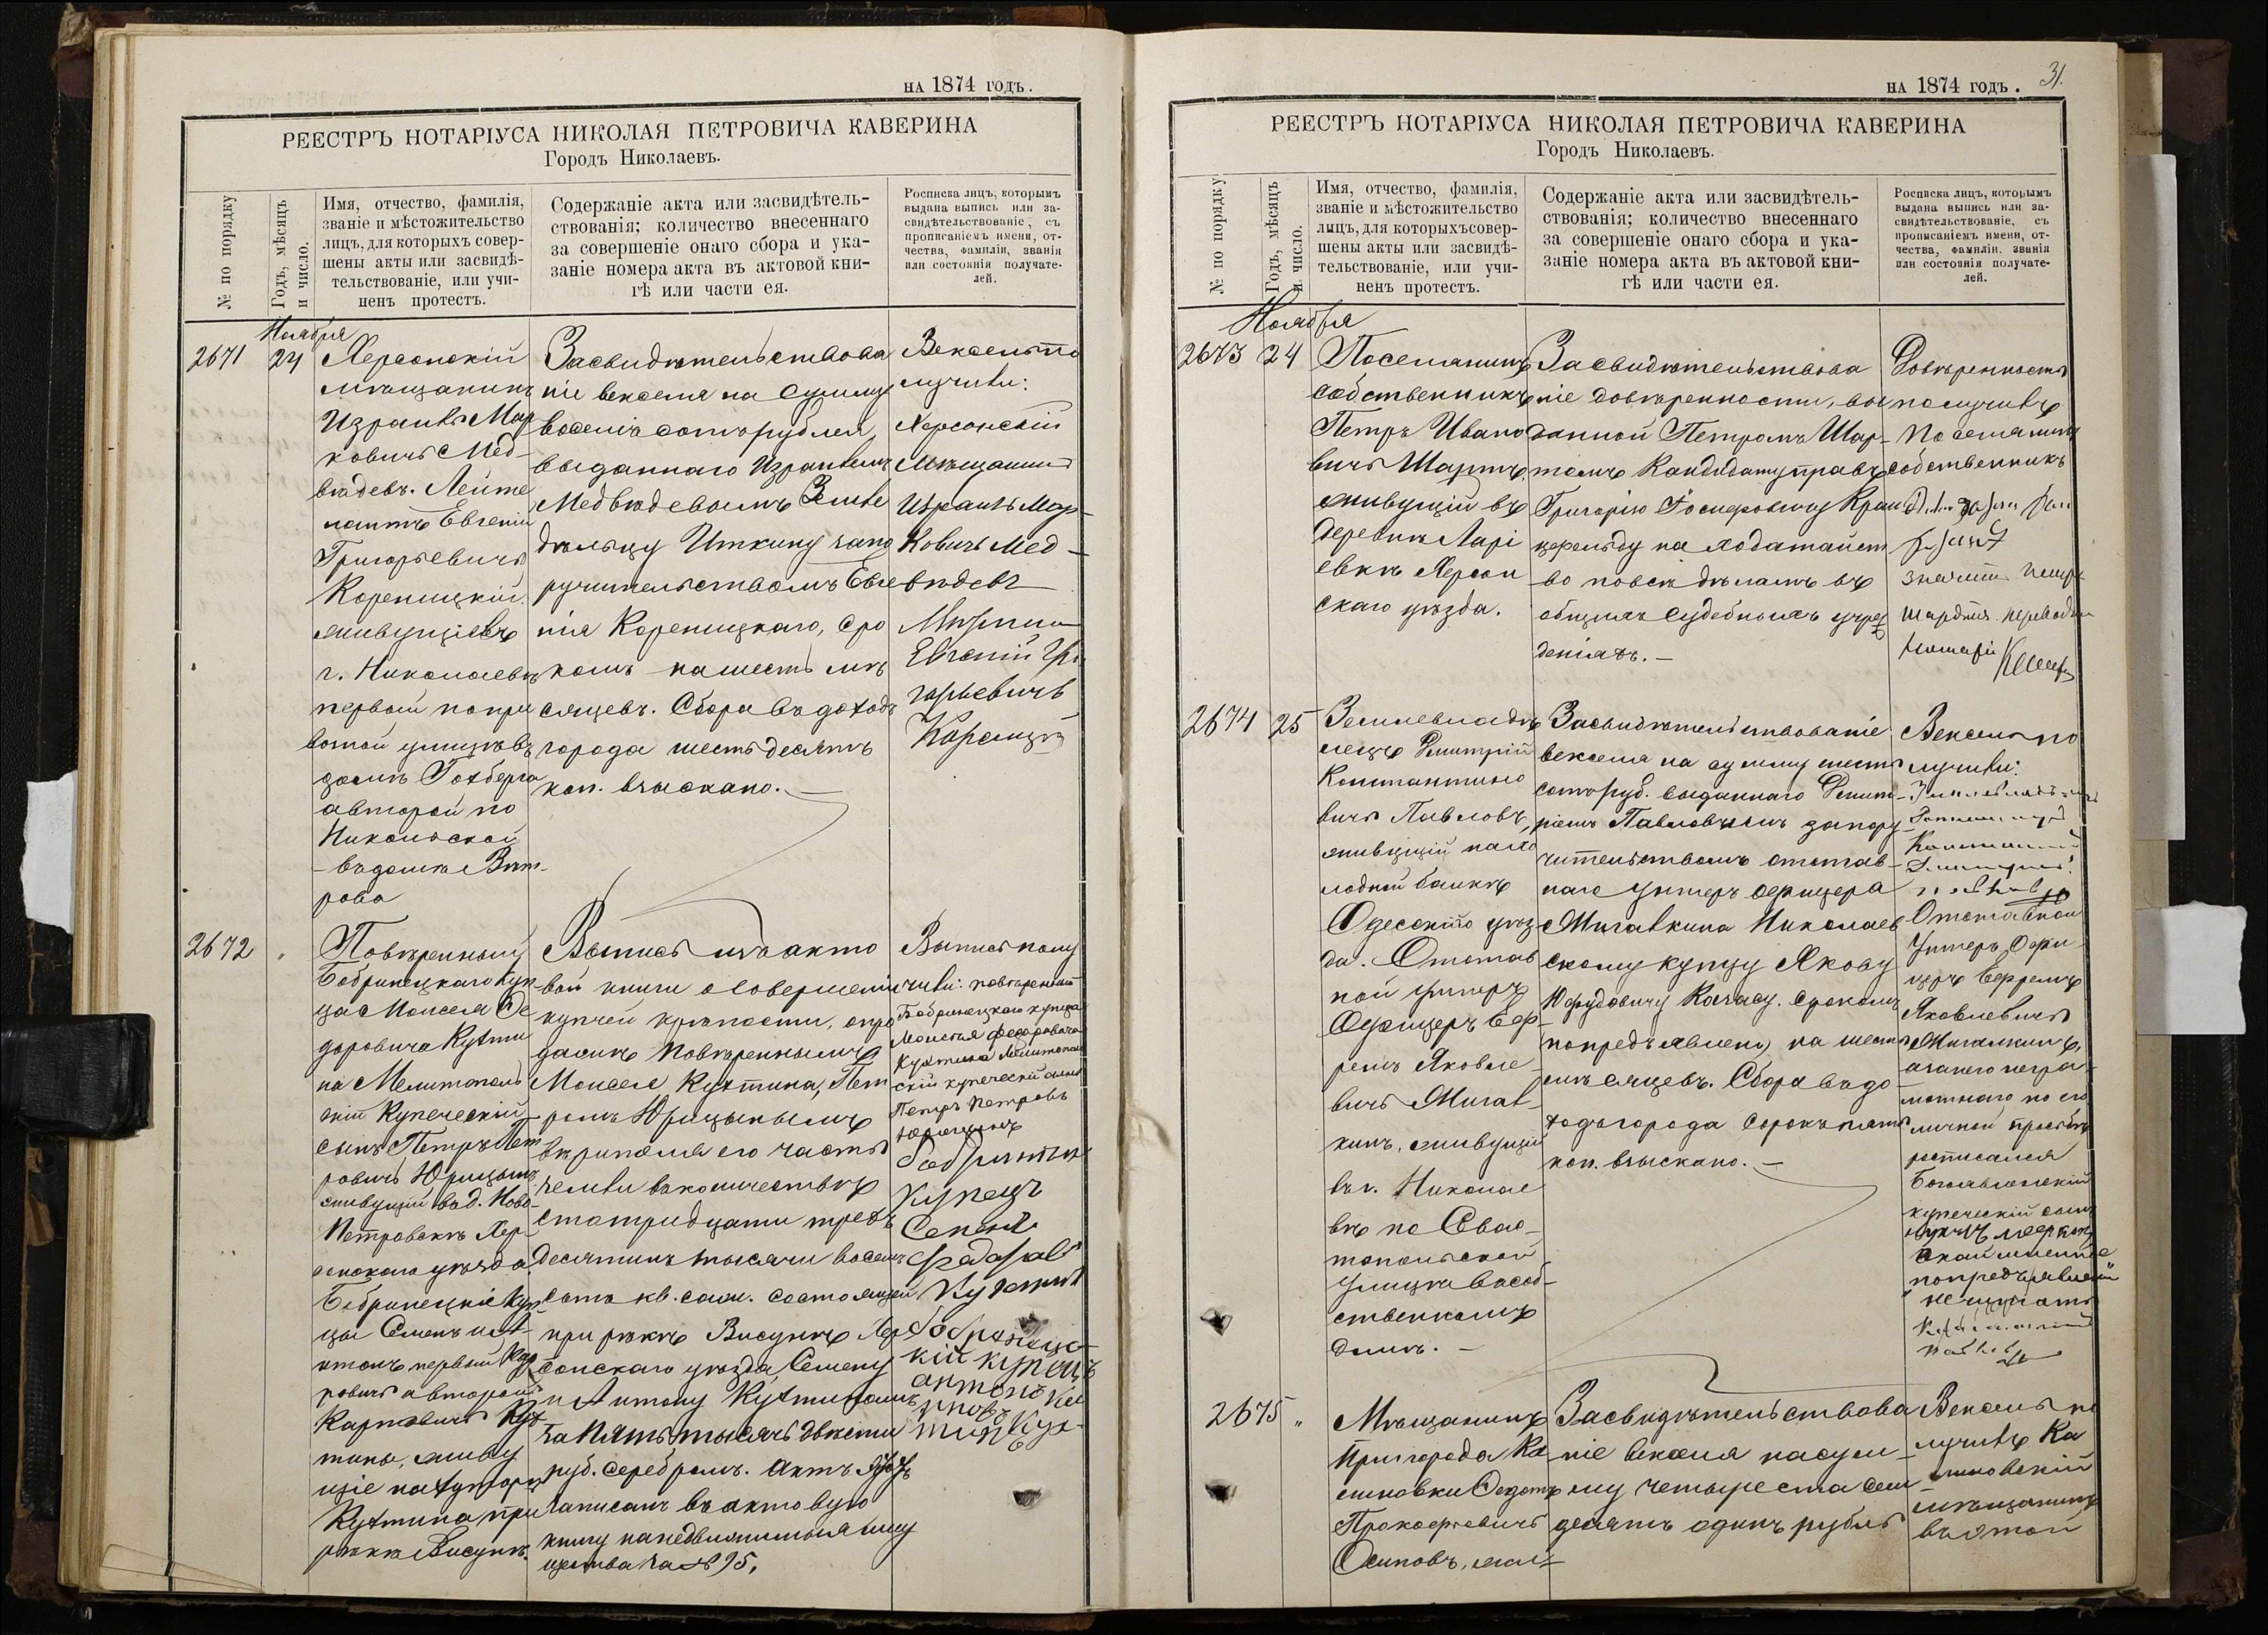 НА 1874 ГОДЪ.
РЕЕСТРЪ НОТАРІУСА НИКОЛАЯ ПЕТРОВИЧА КАВЕРИНА
Городъ Николаевъ.
№ по порядку
Годъ, мѣсяцъ
и число.
Имя, отчество, фамилія,
званіе и мѣстожительство
лицъ, для которыхъ совер-
шены акты или засвидѣ-
тельствованіе, или учи-
ненъ протестъ.
Содержаніе акта или засвидѣтель-
ствованія; количество внесеннаго
за совершеніе онаго сбора и ука-
заніе номера акта въ актовой кни-
гѣ или части ея.
Росписка лицъ, которымъ
выдана выпись или за-
свидѣтельствованіе, съ
прописаніемъ имени, от-
чества, фамиліи, званія
или состоянія получате-
лей.
Ноября
2671
24
Херсонскій
мѣщанинъ
Израиль Мар
ковичъ Мед-
вѣдевъ. Лейте
нантъ Евгеній
Григорьевичъ
Кореницкій.
живущіе въ
г. Николаевѣ
первый по при
вотной улицѣ въ
домѣ Гохберга
а второй по
Никольской
въ домѣ Вѣт-
рова
Засвидѣтельствова
ніе векселя на сумму
восемь сотъ рублей,
выданнаго Израилемъ
Медвѣдевымъ Земле
дѣльцу Иткину за по
ручительствомъ Евге
нія Кореницкаго, сро
комъ на шесть мѣ
сяцевъ. Сбора въ доходъ
города шестьдесятъ
коп. взыскано.
Вексель по
лучили:
Херсонскій
Мѣщанинъ
Израиль Мар-
ковичъ Мед-
вѣдевъ
Евгеній Гри
горьевичъ
2672
"
Повѣренный
Бобринецкаго куп
ца Моисея Ѳе
доровича Кухти
на Мелитополь
скій Купеческій
сынъ Петръ Пет
ровичъ Юрицынъ
живущій въ д. Ново-
Петровскѣ Хер-
сонскаго уѣзда.
Бобринецкіе Куп
цы Семенъ и Ан-
тонъ первый Кар
повичъ а второй
Карповичъ Кух-
тины, живу
щіе на хуторѣ
Кухтина при
рѣкѣ Висунѣ.
Выпись изъ акто
вой книги о совершеніи
купчей крѣпости, о про
дажѣ повѣреннымъ
Моисея Кухтина, Пет
ромъ Юрицынымъ
вѣрителя его часть
земли въ количествѣ
сто тридцати трехъ
десятинъ тысячи восемь
сотъ кв. саж. состоящей
при рѣкѣ Висунѣ Хер
сонскаго уѣзда, Семену
и Антону Кухтинымъ
за пять тысячъ двѣсти
руб. серебромъ. Актъ
записанъ въ актовую
книгу на недвижимыя иму
щества за № 95.
Выпись полу
чили: повѣренный
Бобринецкаго купца
Моисея Федоровича
Кухтина Мелитополь
скій купеческій сынъ
Петръ Петровъ
Юрицынъ
купецъ
Семенъ
Кухтинъ
кій купецъ
антонъ
НА 1874 ГОДЪ.
31.
РЕЕСТРЪ НОТАРІУСА НИКОЛАЯ ПЕТРОВИЧА КАВЕРИНА
Городъ Николаевъ.
№ по порядку
Годъ, мѣсяцъ
и число.
Имя, отчество, фамилія,
званіе и мѣстожительство
лицъ, для которыхъ совер-
шены акты или засвидѣ-
тельствованіе, или учи-
ненъ протестъ.
Содержаніе акта или засвидѣтель-
ствованія; количество внесеннаго
за совершеніе онаго сбора и ука-
заніе номера акта въ актовой кни-
гѣ или части ея.
Росписка лицъ, которымъ
выдана выпись или за-
свидѣтельствованіе, съ
прописаніемъ имени, от-
чества, фамиліи, званія
или состоянія получате-
лей.
Ноября
2673
24
Поселянинъ
собственникъ
Петръ Ивано
вичъ Шартъ,
живущій въ
деревнѣ Ларі
евкѣ Херсон
скаго уѣзда.
Засвидѣтельствова
ніе довѣренности, вы
данной Петромъ Шар-
томъ Кандидату правъ
Григорію Іосифовичу Кран
цфельду на ходатайст
во по всѣмъ дѣламъ въ
общихъ судебныхъ учреж
деніяхъ.
Довѣренность
получилъ
Поселянинъ
собственникъ
значитъ Петръ
2674
25
Землевладѣ
лецъ Дмитрій
Константино
вичъ Павловъ,
живущій на Хо
лодной балкѣ
Одесскаго уѣз
да. Отстав
ной унтеръ
Офицеръ Еф-
ремъ Яковле-
вичъ Мигал-
кинъ, живущій
въ г. Николае
вѣ по Севас-
топольской
улицѣ въ соб-
ственномъ
домѣ.
Засвидѣтельствованіе
векселя на сумму шесть
сотъ руб. выданнаго Дмит-
ріемъ Павловымъ за пору-
чительствомъ отстав-
наго унтеръ офицера
Мигалкина Николаев
скому купцу Якову
срокомъ
по предъявленіи на шесть
мѣсяцевъ. Сбора въ до-
ходъ города сорокъ пять
коп. взыскано.
Вексель по
лучили:
Отставной
Унтеръ Офи-
церъ Ефремъ
Яковлевичъ
Мигалкинъ,
а за него негра-
мотнаго по его
личной просьбѣ
росписался
купеческій сынъ
по предъявленіи
не читать
2675
"
Мѣщанинъ
Пригорода Ка-
лниковки Ѳедотъ
Прокофьевичъ
Осиповъ, жи-
Засвидѣтельствова
ніе векселя на сум-
му четыреста семь
десятъ одинъ рубль
Вексель по
лучилъ Ка
мѣщанинъ